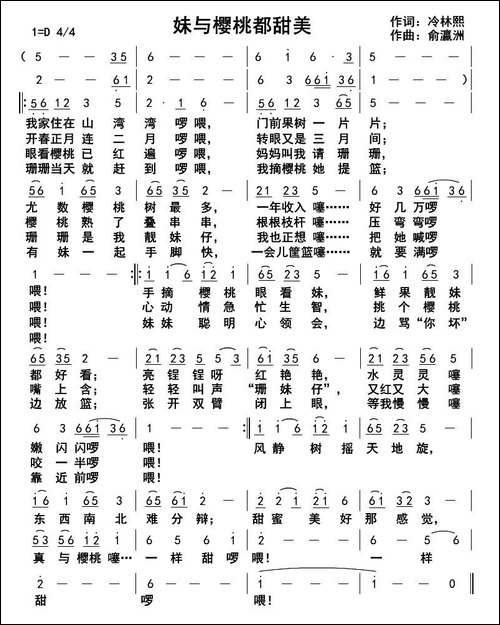 妹与樱桃都甜美
1=D 4/4
作词：冷林熙
作曲：俞瀛洲
( 5 - - 35 | 5 - - - | 6 1 6 1 | 6 - - - |
2 - - 61 | 2 - - - | 6 3 661 36 | 1 - - - )
56 12 3 5 | 2 - 1 6 | 56 12 3 (65) | 5 - - - |
我家住在山湾湾啰喂， 门前果树一片片；
开春正月连二月啰喂， 转眼又是三月间；
眼看樱桃已红遍啰喂， 妈妈叫我请珊珊，
珊珊当天就赶到啰喂， 我摘樱桃她提篮；
56 1 65 3 | 5 6 1 65 | 21 23 5 - | 6 3 661 36 |
尤数樱桃树最多， 一年收入噻…… 好几万啰
樱桃熟了叠串串， 根根枝杆噻…… 压弯弯啰
珊珊是我靓妹仔， 我也正想噻…… 把她喊啰
有妹一起手脚快， 一会儿筐篮噻…… 就要满啰
1 - - - | 1 16 12 1 | 65 23 5 - | 16 1 65 3 |
喂！ 手摘樱桃眼看妹， 鲜果靓妹
喂！ 心动情急忙生智， 挑个樱桃
喂！ 妹妹聪明心领会， 边骂“你坏”
喂！
65 35 2 - | 21 23 5 53 | 65 23 5 - | 16 1 65 3 |
都好看； 亮锃锃呀红艳艳， 水灵灵噻
嘴上含； 轻轻叫声“珊妹仔”， 又红又大噻
边放篮； 张开双臂闭上眼， 等我慢慢噻
6 3 661 36 | 1 - - - | 1 16 12 1 | 65 23 5 - |
嫩闪闪啰喂！ 风静树摇天地旋，
咬一半啰喂！
靠近前啰喂！
16 1 65 3 | 65 35 2 - | 21 23 5 53 | 65 23 5 - |
东西南北难分辩； 甜蜜美好那感觉，
53 56 12 1 | 6 - 5 3 | 2 1 - - | 6 - 5 6 |
真与樱桃噻… 一样甜啰喂！ 一样
2 - - - | 6 - - - | 1 - - - | 1 - - 0
甜 啰 喂！